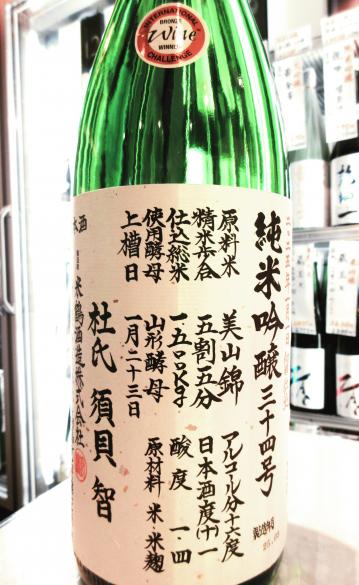 INTERNATIONAL
Wine
CHALLENGE
BRONZE
WINNER
純米吟醸三十四号
原料米 美山錦 アルコール分十六度
精米歩合 五割五分 日本酒度(十)一
仕込総米 一五〇〇Kg 酸度 一.四
使用酵母 山形酵母 原材料 米 米麹
上槽日 一月二十三日
杜氏 須貝 智
米鶴酒造株式会社
酒